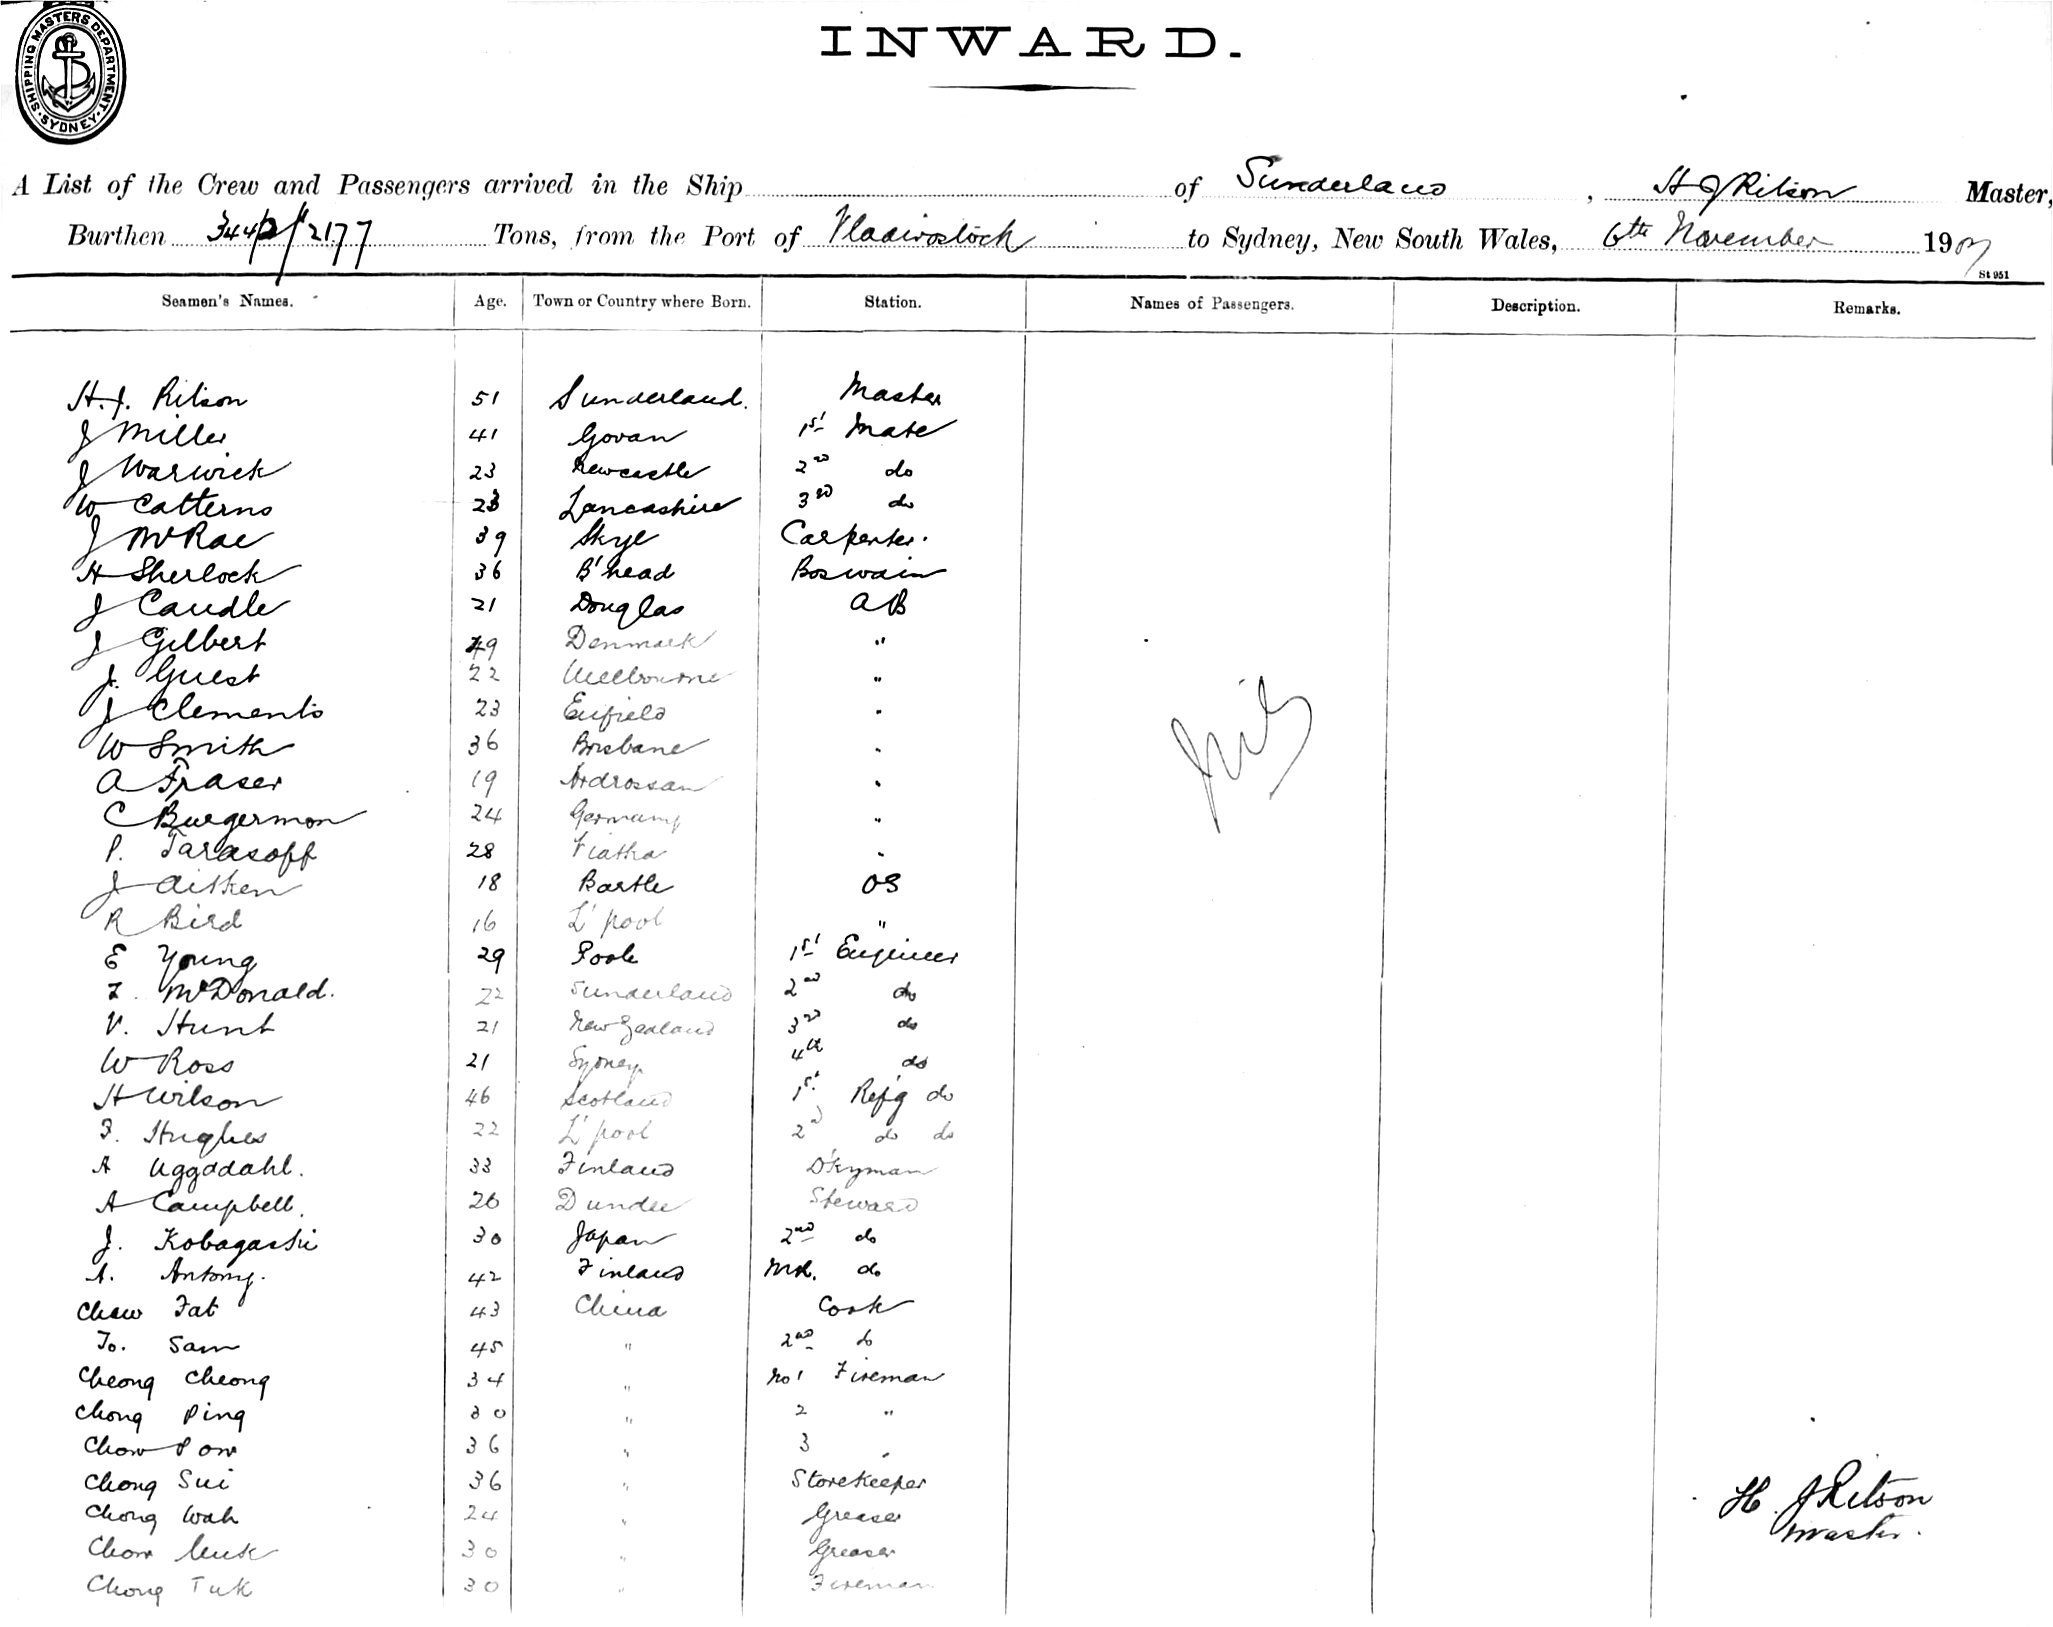 SHIPPING MASTERS DEPARTMENT. SYDNEY.
INWARD.
A List of the Crew and Passengers arrived in the Ship of Sunderland, H J Ritson Master,
Burthen 2177 Tons, from the Port of Vladivostock to Sydney, New South Wales, 6th November 190
St 951
Seamen's Names. Age. Town or Country where Born. Station. Names of Passengers. Description. Remarks.
H. J. Ritson 51 Sunderland. Master
J Miller 41 Govan 1st Mate
J Warwick 23 Newcastle 2nd do
W Catterns 23 Lancashire 3rd do
J McRae 39 Skye Carpenter.
H Sherlock 36 B'head Boswain
J Caudle 21 Douglas AB
J Gilbert 49 Denmark "
J. Guest 22 Melbourne "
J Clements 23 Enfield "
W Smith 36 Brisbane "
A Fraser 19 Ardrossan "
C Buegermon 24 Germany "
P. Tarasoff 28 "
J Aitken 18 OS
R Bird 16 L'pool "
E Young 29 Poole 1st Engineer
McDonald. 22 Sunderland 2nd do
V. Hunt 21 New Zealand 3rd do
W Ross 21 Sydney 4th do
H Wilson 46 Scotland 1st Refg do
Hughes 22 L'pool 2nd do do
A Uggddahl. 33 Finland D'kyman
A Campbell. 26 Dundee Steward
J. Kobagashi 30 Japan 2nd do
A. Antony. 42 Finland do
Chow Fat 43 China Cook
To. Sam 45 " 2nd do
Cheong Cheong 34 " No 1 Fireman
Chong Ping 30 " 2 "
Chow Pow 36 " 3 "
Chong Sui 36 " Storekeeper
Chong Wah 24 " Greaser
Chow 30 " Greaser
Chong Tuk 30 " Fireman
Nil
H. J Ritson
Master.